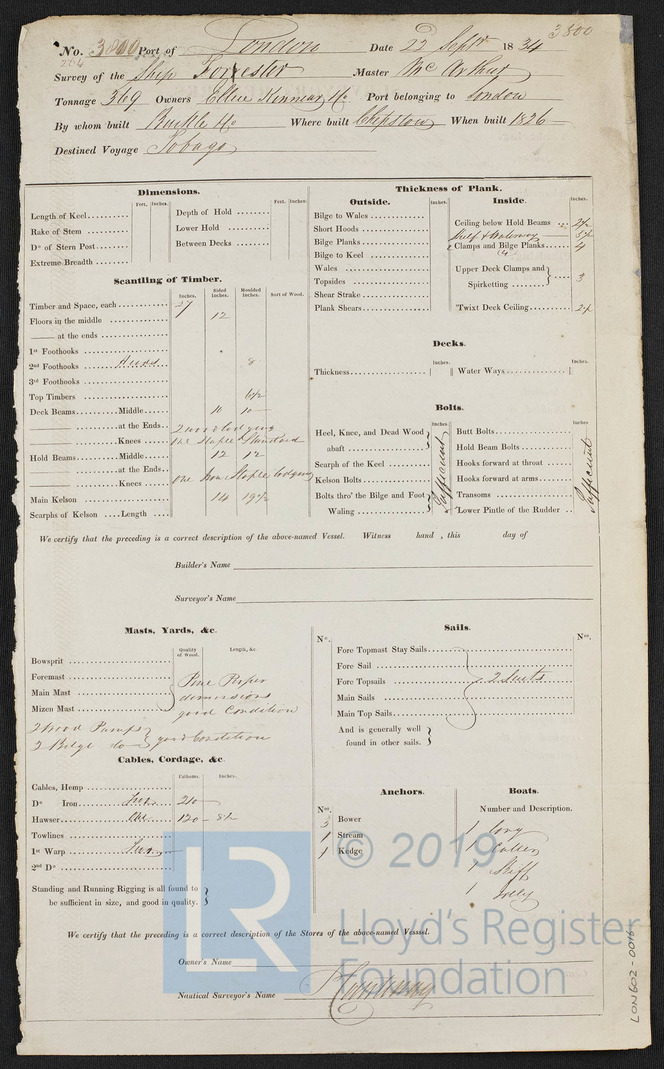 3800
No. 3800 Port of London Date 22 Septr 1834
204
Survey of the Ship Forrester Master Mc Arthur
Tonnage 369 Owners Ellice Kinnear & Co Port belonging to London
By whom built Buckle & Co Where built Chepstow When built 1826
Destined Voyage Tobago
Dimensions.
Feet. Inches. Feet. Inches.
Length of Keel
Rake of Stem
Do of Stern Post
Extreme Breadth
Depth of Hold
Lower Hold
Between Decks
Scantling of Timber.
Inches. Sided Inches. Moulded Inches. Sort of Wood.
Timber and Space, each 27
Floors in the middle 12
—— at the ends
1st Foothooks
2nd Foothooks 8
3rd Foothooks
Top Timbers
Deck Beams Middle 10 10
—— at the Ends
—— Knees
Hold Beams Middle 12 12
—— at the Ends
—— Knees One Iron Staple lodging
Main Kelson 14 19½
Scarphs of Kelson Length
Thickness of Plank.
Outside. Inches.
Bilge to Wales
Short Hoods
Bilge Planks
Bilge to Keel
Wales
Topsides
Shear Strake
Plank Shears
Inside. Inches.
Ceiling below Hold Beams
Shelf & Waterway
Clamps and Bilge Planks 4
Upper Deck Clamps and
Spirketting 3
'Twixt Deck Ceiling
Decks.
Inches. Inches.
Thickness Water Ways
Bolts.
Inches. Inches
Heel, Knee, and Dead Wood
abaft
Scarph of the Keel
Kelson Bolts
Bolts thro' the Bilge and Foot
Waling
Sufficient
Butt Bolts
Hold Beam Bolts
Hooks forward at throat
Hooks forward at arms
Transoms
Lower Pintle of the Rudder
Sufficient
We certify that the preceding is a correct description of the above-named Vessel. Witness hand , this day of
Builder's Name
Surveyor's Name
Masts, Yards, &c.
Quality of Wood. Length, &c.
Bowsprit
Foremast
Main Mast
Mizen Mast
Pine Proper
dimensions
good Condition
2 Wood Pumps
2 Bilge do good Condition
Cables, Cordage, &c.
Fathoms. Inches.
Cables, Hemp
Do Iron 210
Hawser One 120 - 8½
Towlines
1st Warp
2nd Do
Standing and Running Rigging is all found to
be sufficient in size, and good in quality.
Sails.
No. Nos.
Fore Topmast Stay Sails
Fore Sail
Fore Topsails 2 Suits
Main Sails
Main Top Sails
And is generally well
found in other sails.
Anchors.
Nos.
3 Bower
1 Stream
1 Kedge
Boats.
Number and Description.
1 Long
1 Cutter
1 Skiff
1 Jolly
We certify that the preceding is a correct description of the Stores of the above-named Vesssel.
Owner's Name
Nautical Surveyor's Name
LR
© 2019
Lloyd's Register
Foundation
LON602-0016